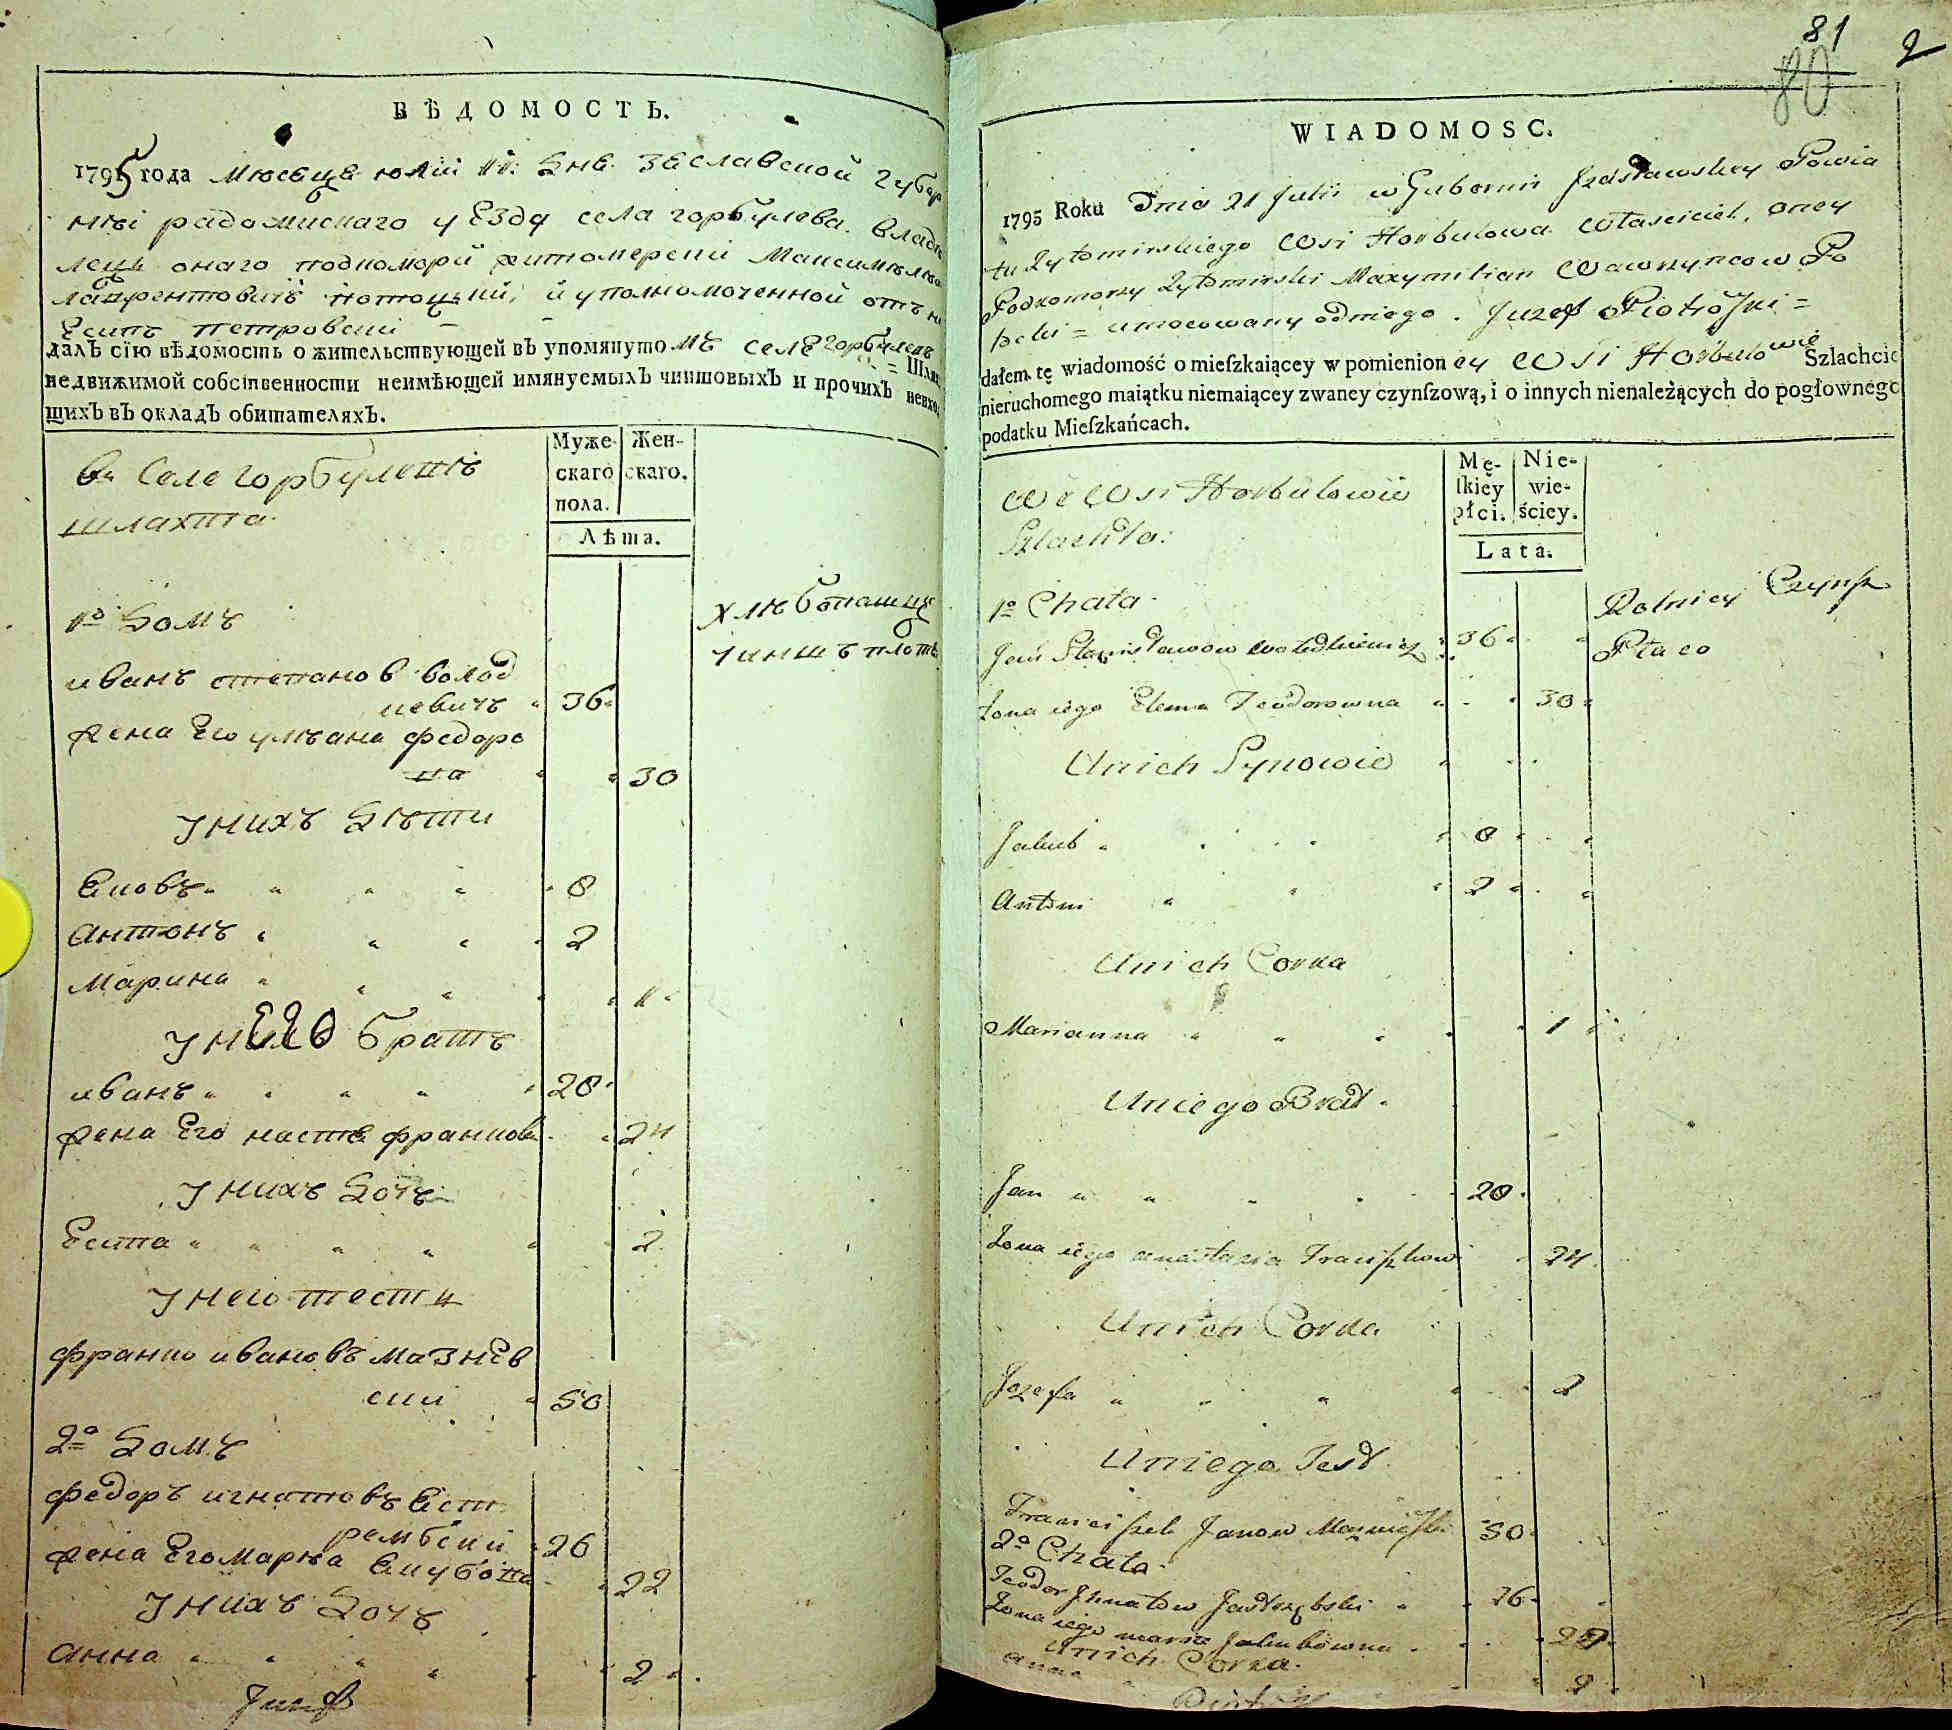 ВѢДОМОСТЬ.
1795 года Мѣсеца юлій 11. Дня. Заславской Губер
ніи радомислкаго уезду села горбулева. Владѣ
лецъ онаго подкоморй житомерскій Максимиліан
лаврентовичъ потоцкій, й уполномоченной отъ н
Есипъ петровскі
далъ сїю вѣдомость о жительствующей въ упомянутомъ селе Горбулевѣ = Шля
недвижимой собственности неимѣющей имянуемыхъ чиншовыхъ и прочихъ невхо
щихъ въ окладъ обитателяхъ.
Муже-скаго пола. Жен-скаго.
Лѣта.
въ Селе горбулевѣ
шляхта.
1º Домъ
хлѣбопашцы
чиншъ плотѣ
иванъ степановъ волод
кевичъ 36
жена Его улѣана федоро
на 30
У нихъ Дѣти
Яковъ 8
Антонъ 2
Марина 1
У него братъ
иванъ 28
жена Его настѣ францов 24
У нихъ Дочъ
Есипа 2
У него тестъ
франко ивановъ мазнев
скій 50
2º Домъ
федоръ игнатовъ Яст
рембскій 26
жена Его марѣа Якубовна 22
У нихъ Дочъ
Анна 2
Juzef
81
80
2
WIADOMOSC.
1795 Roku Dnia 21 Julii w Gubernii Jzasławskey Powia
tu Zytomirskiego Wsi Horbulowa Właściciel, oney
Podkomorzy Zytomirski Maxymilian Wawrzyncow Po
tocki = umocowany odniego. Juzef Piotrowski =
dałem tę wiadomość o mieſzkaiącey w pomienioney Wsi Horbulowie Szlachcie
nieruchomego maiątku niemaiącey zwaney czynſzową, i o innych nienależących do pogłownego
podatku Mieſzkańcach.
Mę-ſkiéy płci. Nie-wie-ściey.
Lata.
We Wsi Horbulowie
Szlachta:
1º Chata
Rolnicy Czynsz
Płaco
Jan Stanisławow Wołodkiewicz 36
Zona iego Elena Teodorowna 30
Unich Synowie
Jakub 8
Antoni 2
Unich Corka
Marianna 1
Uniego Brat
Jan 28
Zona iego Anastazia Franciszkow 24
Unich Corka
Jozefa 2
Uniego Test
Franciszek Janow Mazniewski 50
2º Chata
Teodor Jhnatow Jastrzębski 26
Zona iego Maria Jakubowna 22
Unich Corka
Anna 2